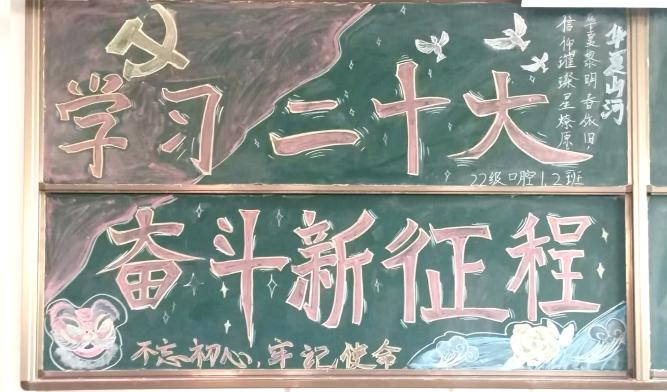 学习二十大
华夏山河
华夏黎明春依旧，
信仰璀璨星燎原
22级口腔1.2班
奋斗新征程
不忘初心，牢记使命